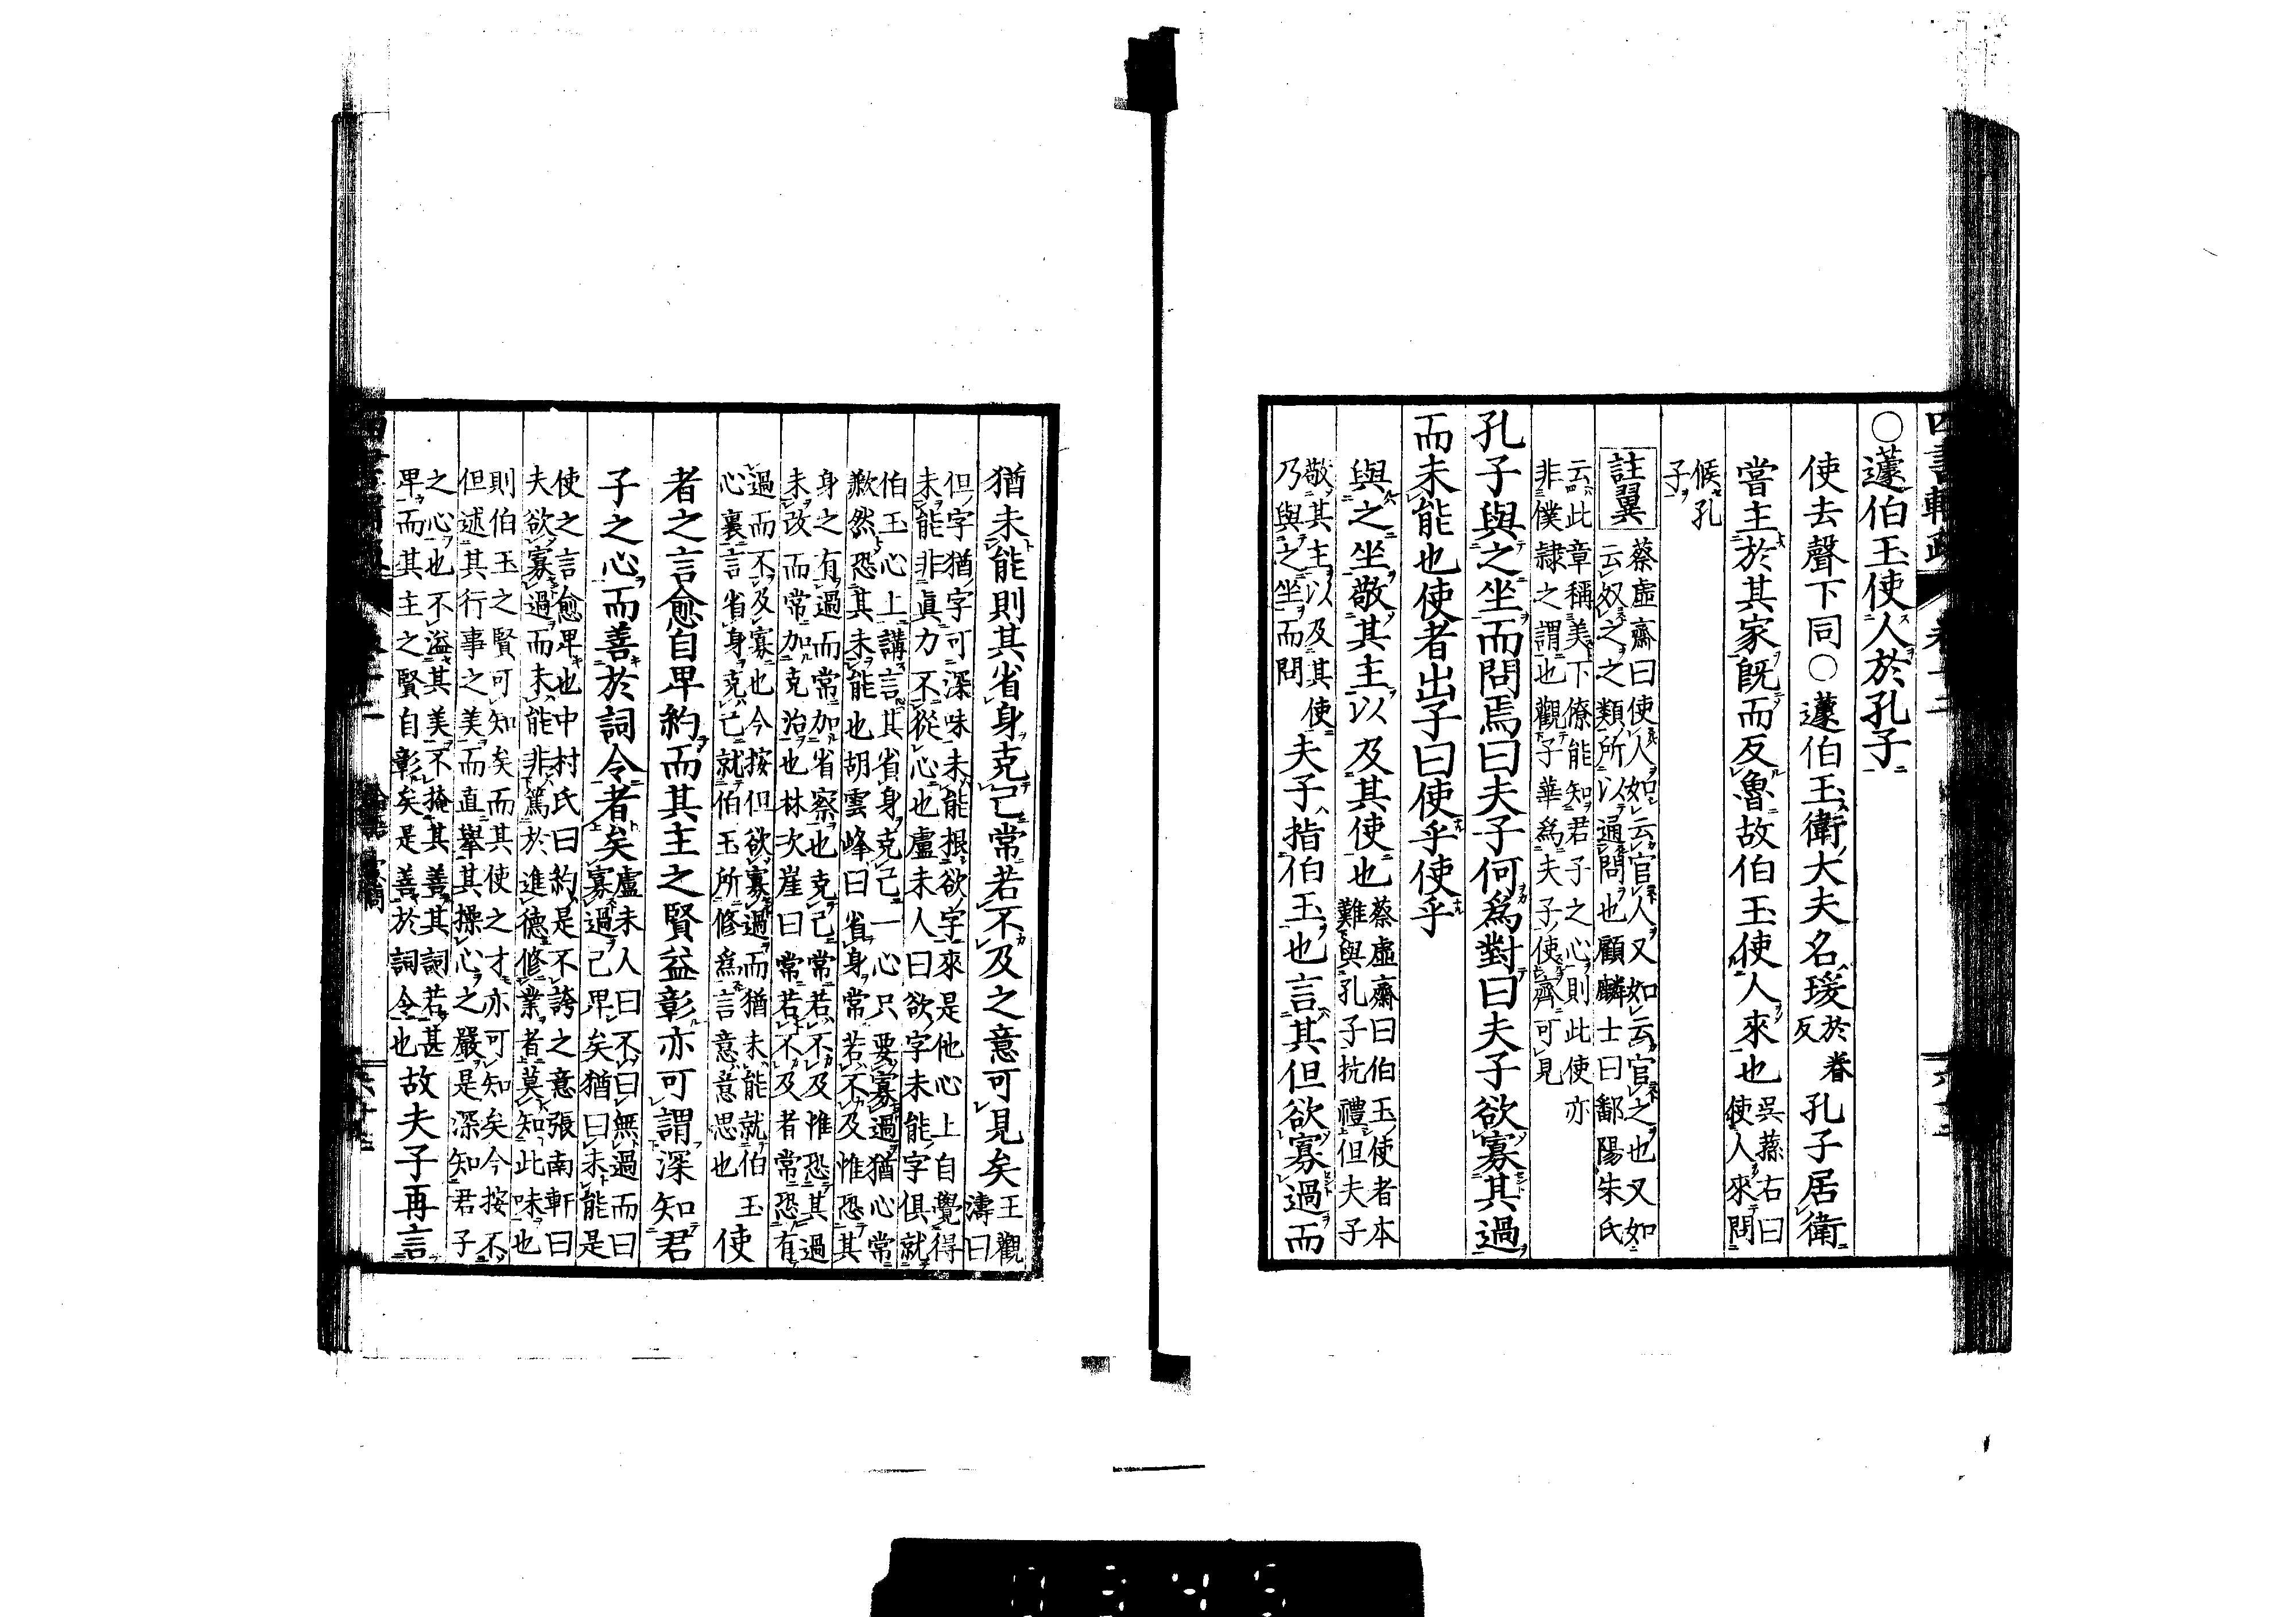 ○蘧伯玉使人於孔子
使去聲下同○蘧伯玉衛大夫名瑗於眷反孔子居衛
嘗主於其家既而反魯故伯玉使人來也吳蓀右曰使人來問
候孔子
註翼 蔡虛齋曰使人如云官人又如云官之也又如
云奴之之類所以通問也顧麟士曰鄱陽朱氏
云此章稱美下僚能知君子之心則此使亦
非僕隷之謂也觀子華為夫子使齊可見
孔子與之坐而問焉曰夫子何為對曰夫子欲寡其過
而未能也使者出子曰使乎使乎
與之坐敬其主以及其使也蔡虛齋曰伯玉使者本難與孔子抗禮但夫子
敬其主以及其使乃與之坐而問夫子指伯玉也言其但欲寡過而
猶未能則其省身克己常若不及之意可見矣王觀濤曰
但字猶字可深味未能根欲字來是他心上自覺得
未能非眞力不從心也盧未人曰欲字未能字俱就
伯玉心上講言其省身克己一心只要寡過猶心常
歉然恐其未能也胡雲峰曰省身常若不及惟恐其
身之有過而常加省察也克己常若不及惟恐其過
未改而常加克治也林次崖曰常若不及者常恐有
過而不及寡也今按但欲寡過而猶未能就伯玉
心裏言省身克己就伯玉所修為言意意思也使
者之言愈自卑約而其主之賢益彰亦可謂深知君
子之心而善於詞令者矣盧未人曰不曰無過而曰寡過己卑矣猶曰未能是
使之言愈卑也中村氏曰約是不誇之意張南軒曰
夫欲寡過而未能非篤於進德修業者莫知此味也
則伯玉之賢可知矣而其使之才亦可知矣今按不
但述其行事之美而直擧其操心之嚴是深知君子
之心也不溢其美不掩其善其詞若甚
卑而其主之賢自彰矣是善於詞令也故夫子再言